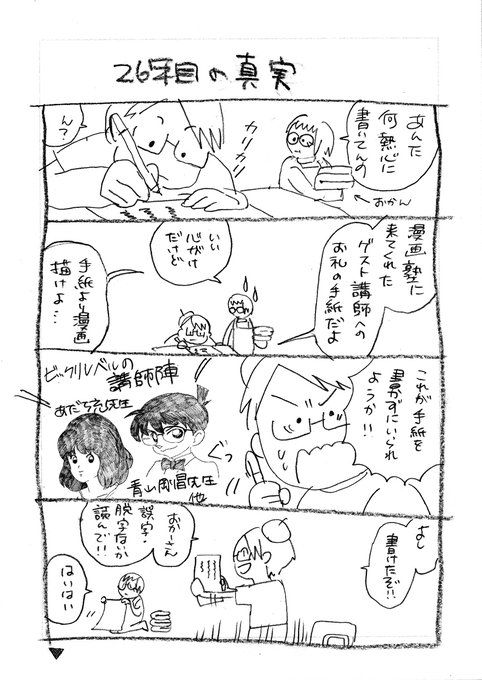 26年目の真実
あんた
何熱心に
書いてんの
カリカリ
ん?
←おかん
漫画塾に
来てくれた
ゲスト講師への
お礼の手紙だよ
いい
心がけ
だけど
手紙より漫画
描けよ…
これが手紙を
書かずにいられ
ようか!!
ビックリレベルの
講師陣
あだち充先生
ぐっ
青山剛昌先生
他
よし
書けたぞ!!
おかーさん
誤字・
脱字ないか
読んで!!
はいはい